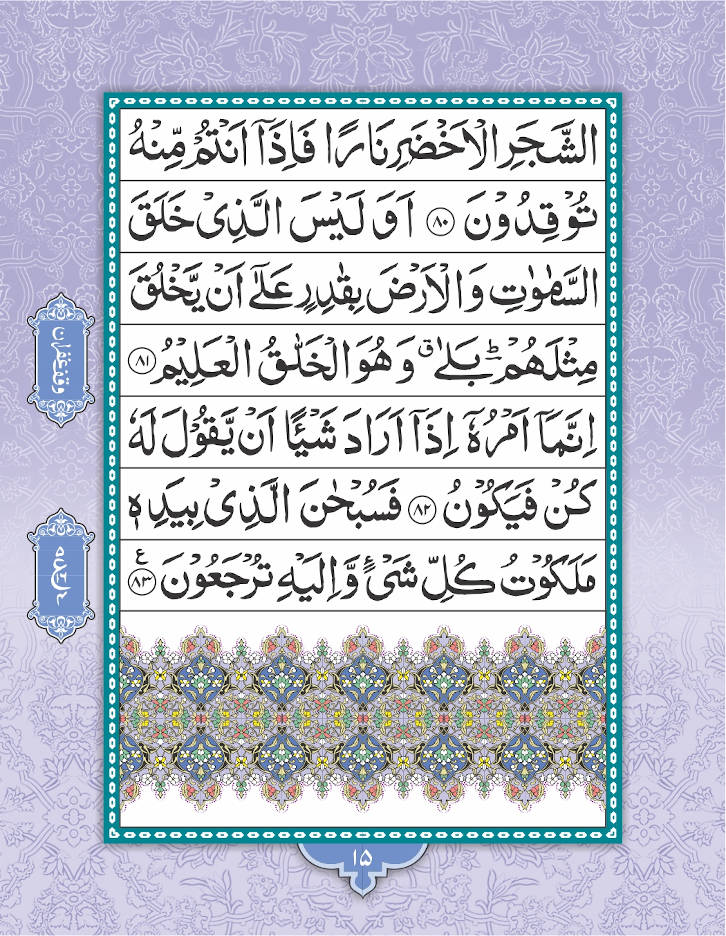 الشَّجَرِ الْاَخْضَرِ نَارًا فَاِذَاۤ اَنْتُمْ مِّنْهُ
تُوْقِدُوْنَ ﴿۸۰﴾ اَوَ لَيْسَ الَّذِىْ خَلَقَ
السَّمٰوٰتِ وَ الْاَرْضَ بِقٰدِرٍ عَلٰۤى اَنْ يَّخْلُقَ
مِثْلَهُمْ ؕ بَلٰى ۗ وَ هُوَ الْخَلّٰقُ الْعَلِيْمُ ﴿۸۱﴾
اِنَّمَاۤ اَمْرُهٗۤ اِذَاۤ اَرَادَ شَيْـًٔا اَنْ يَّقُوْلَ لَهٗ
كُنْ فَيَكُوْنُ ﴿۸۲﴾ فَسُبْحٰنَ الَّذِىْ بِيَدِهٖ
مَلَكُوْتُ كُلِّ شَىْءٍ وَّ اِلَيْهِ تُرْجَعُوْنَ ﴿۸۳﴾ ع
وقف غفران
۱۵